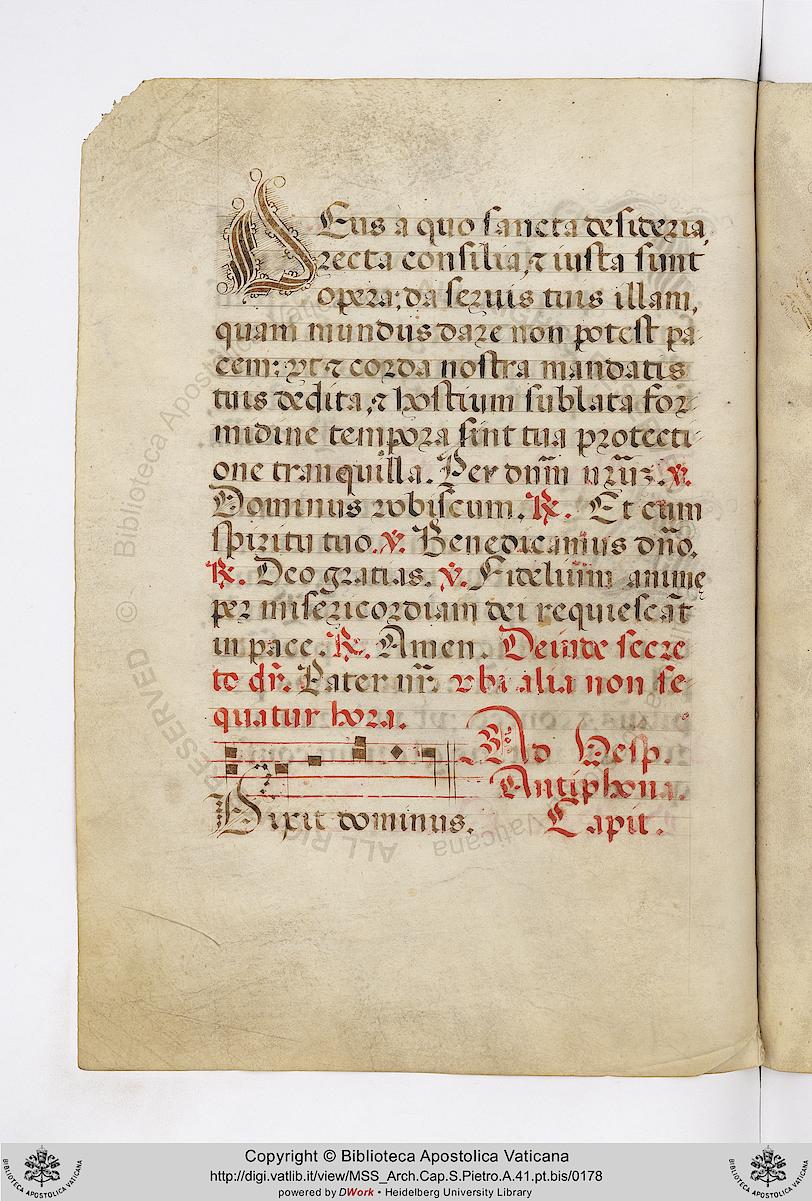 DEus a quo sancta desideria,
recta consilia, ⁊ iusta sunt
opera: da seruis tuis illam,
quam mundus dare non potest pa-
cem: vt ⁊ corda nostra mandatis
tuis dedita, ⁊ hostium sublata for-
midine tempora sint tua protecti-
one tranquilla. Per dñm nr̃uʒ. ℣.
Dominus vobiscum. ℟. Et cum
spiritu tuo. ℣. Benedicamus dño.
℟. Deo gratias. ℣. Fidelium animę
per misericordiam dei requiescãt
in pace. ℟. Amen. Deinde secre
to dr̃. Pater nr̃. vbi alia non se-
quatur hora.
Ad Vesp.
Antiphona.
Dixit dominus. Capit.
ALL RIGHTS RESERVED © Biblioteca Apostolica Vaticana
Copyright © Biblioteca Apostolica Vaticana
http://digi.vatlib.it/view/MSS_Arch.Cap.S.Pietro.A.41.pt.bis/0178
powered by DWork • Heidelberg University Library
BIBLIOTECA APOSTOLICA VATICANA
BIBLIOTECA APOSTOLICA VATICANA